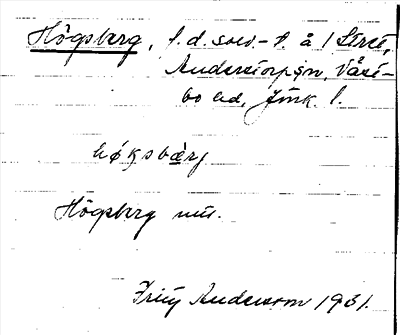 Högsberg, f.d. sold.-t. å 1 Stret,
Anderstorpsn, Väst-
bo hd, Jönk. l.
høksbærj
Högsberg mu.
Fritz Andersson 1931.